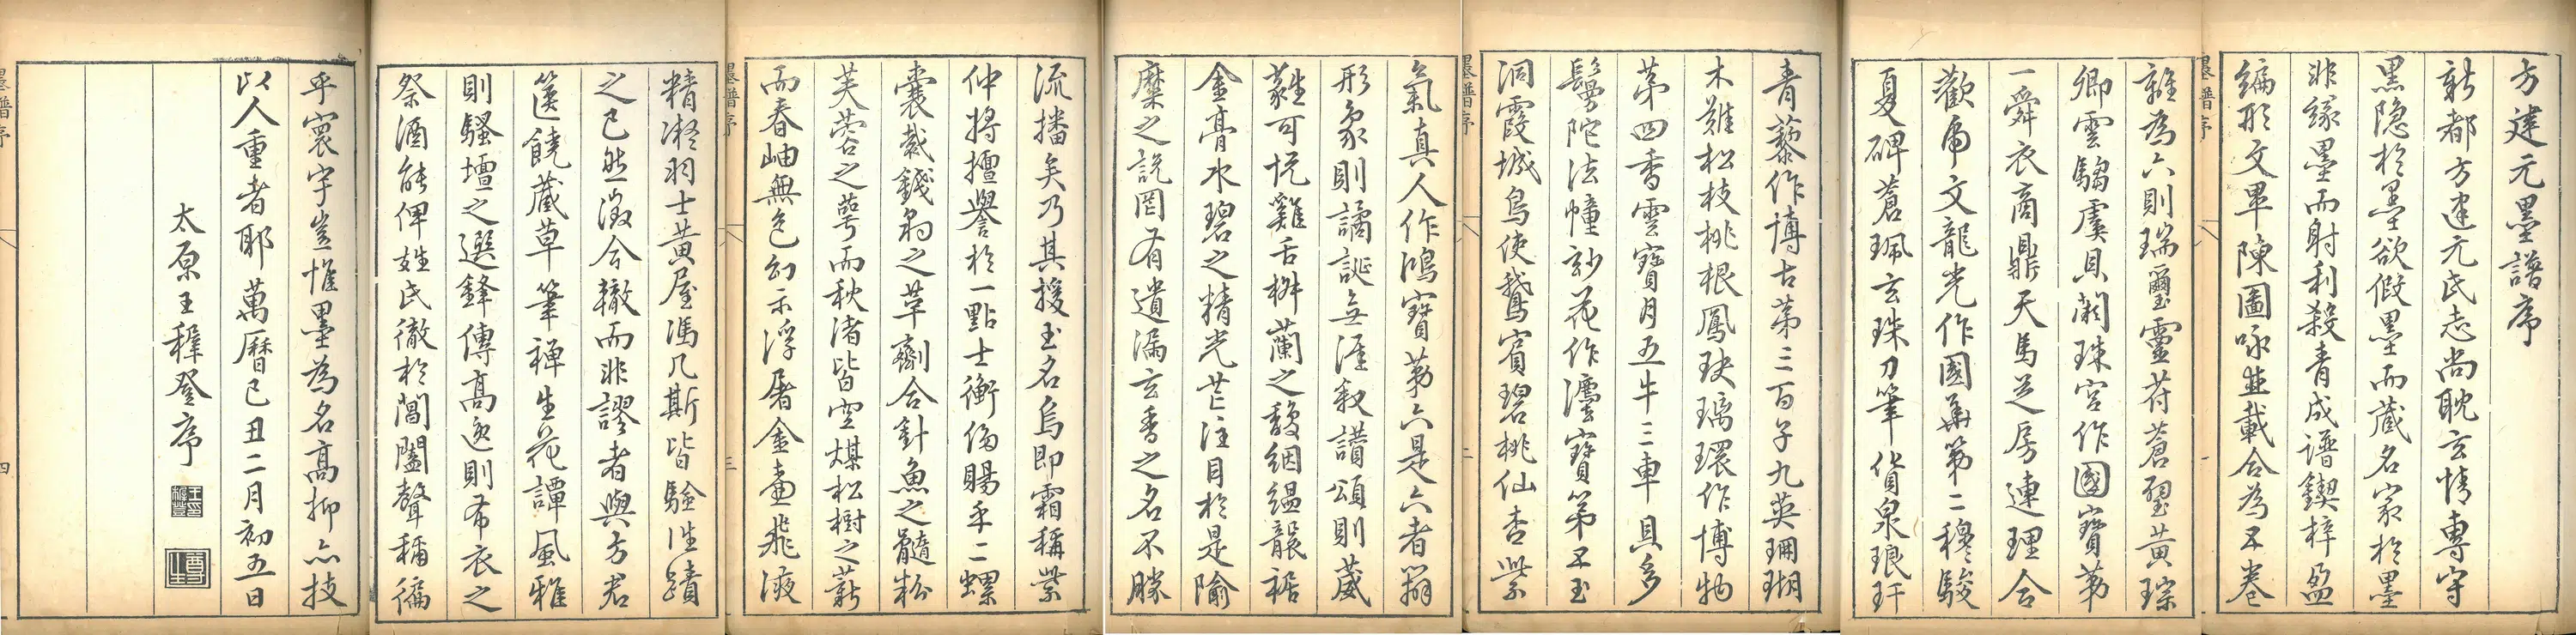 方建元墨譜序
新都方建元氏志尚耽玄情專守
黑隐於墨欲假墨而藏名家於墨
非緣墨而射利殺青成譜鍥梓盈
編形文畢陳圖咏並載合為五卷
離為六則瑞璽靈符蒼璧黃琮
卿雲騶虞貝闕珠宮作國寶第
一舜衣商鼎天馬芝房連理合
歡虎文龍光作國華第二穆駿
夏碑蒼珮玄珠刀筆貨泉琅玕
青藜作博古第三百子九英珊瑚
木難松枝桃根鳳玦璃環作博物
第四香雲寶月五牛三車貝多
鬘陀法幢紗花作灋寶第五玉
洞霞城烏使鵞賓碧桃仙杏紫
氣真人作鴻寶第六是六者辯
形象則譎誕無涯敘讚頌則葳
蕤可悅雞舌椒蘭之馥絪縕龍裾
金膏水碧之精光芒注目於是隃
糜之說罔有遺漏玄香之名不勝
流播矣乃其授玉名烏即霜稱紫
仲將擅譽於一點士衡侈賜乎二螺
囊裁錢芻之草劑合針魚之髓粉
芙蓉之萼而秋渚皆空煤松樹之薪
而春岫無色幻示浮屠金壺飛液
精凝羽士黃屋馮几斯皆驗往蹟
之已然徵今轍而非謬者與方君
篋饒藏草筆禅生花譚風雅
則騷壇之選鋒傳高逸則布衣之
祭酒能俾姓氏徹於閶闔聲稱徧
乎寰宇豈惟墨為名高抑亦技
以人重者耶萬曆己丑二月初五日
太原王穉登序
墨譜序
一
墨譜序
二
墨譜序
三
墨譜序
四